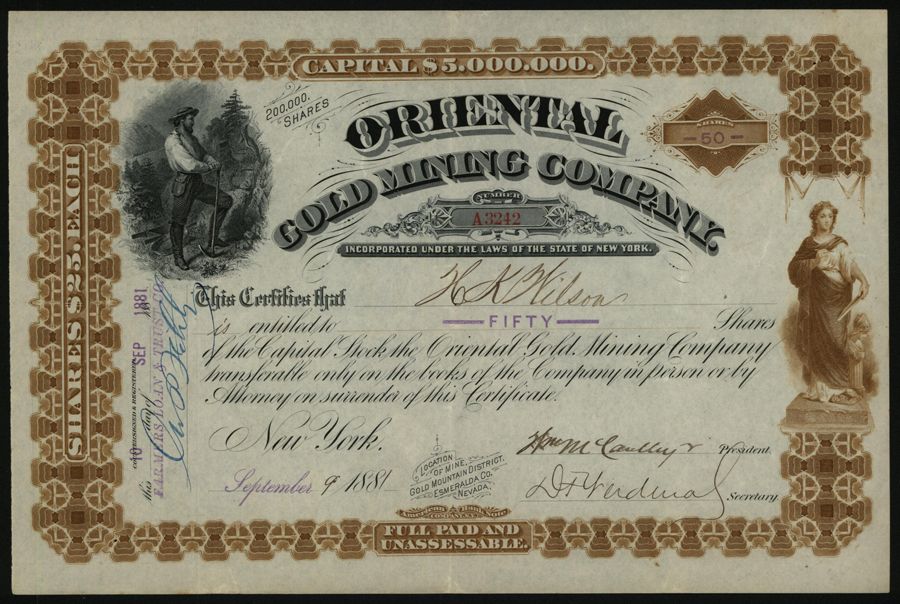 CAPITAL $5.000.000.
200,000. SHARES
ORIENTAL
SHARES
—50—
GOLD MINING COMPANY,
NUMBER
A3242
INCORPORATED UNDER THE LAWS OF THE STATE OF NEW YORK.
SHARES $25. EACH
This Certifies that H K Wilson
is entitled to —FIFTY— Shares
of the Capital Stock the Oriental Gold Mining Company
transferable only on the books of the Company in person or by
Attorney on surrender of this Certificate.
New York.
September 9 1881
LOCATION
OF MINE.
GOLD MOUNTAIN DISTRICT.
ESMERALDA CO.
NEVADA.
President.
Secretary.
COUNTERSIGNED & REGISTERED
this 10 day of SEP 1881
FARMERS LOAN & TRUST CO.
American Bank
FULL PAID AND
UNASSESSABLE.